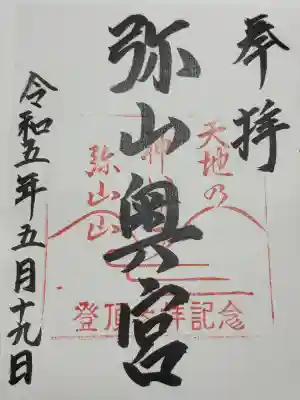 奉拝
弥山奥宮
令和五年五月十九日
天地乃
神
弥山山
登頂 拝記念